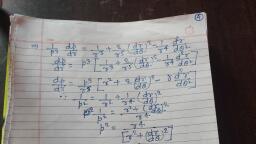 ⇒ 1/p³ dp/dr = 1/r³ + 2/r⁵ (dr/dθ)² - 1/r⁴ d²r/dθ²
dp/dr = p³ [1/r³ + 2/r⁵ (dr/dθ)² - 1/r⁴ d²r/dθ²]
dp/dr = p³/r⁵ [r² + 2 (dr/dθ)² - r d²r/dθ²]
∵ 1/p² = 1/r² + 1/r⁴ (dr/dθ)²
1/p² = r² + (dr/dθ)² / r⁴
p² = r⁴ / [r² + (dr/dθ)²]